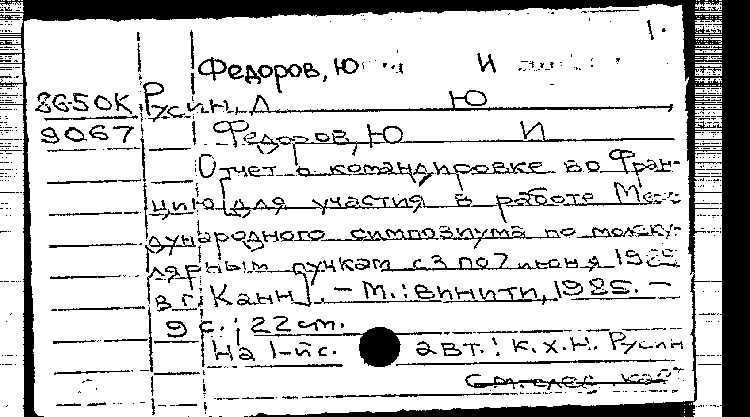 1.
Федоров, Ю И
8650К Русин, Л Ю
9067 Федоров, Ю И
Отчет о командировке во Фран-
цию [для участия в работе Меж-
дународного симпозиума по молеку-
лярным пучкам с 3 по 7 июня 1985
в г. Канн]. - М.: ВИНИТИ, 1985. -
9 с.; 22 см.
На 1-й с. авт.: к.х.н. Русин
См. след. карт